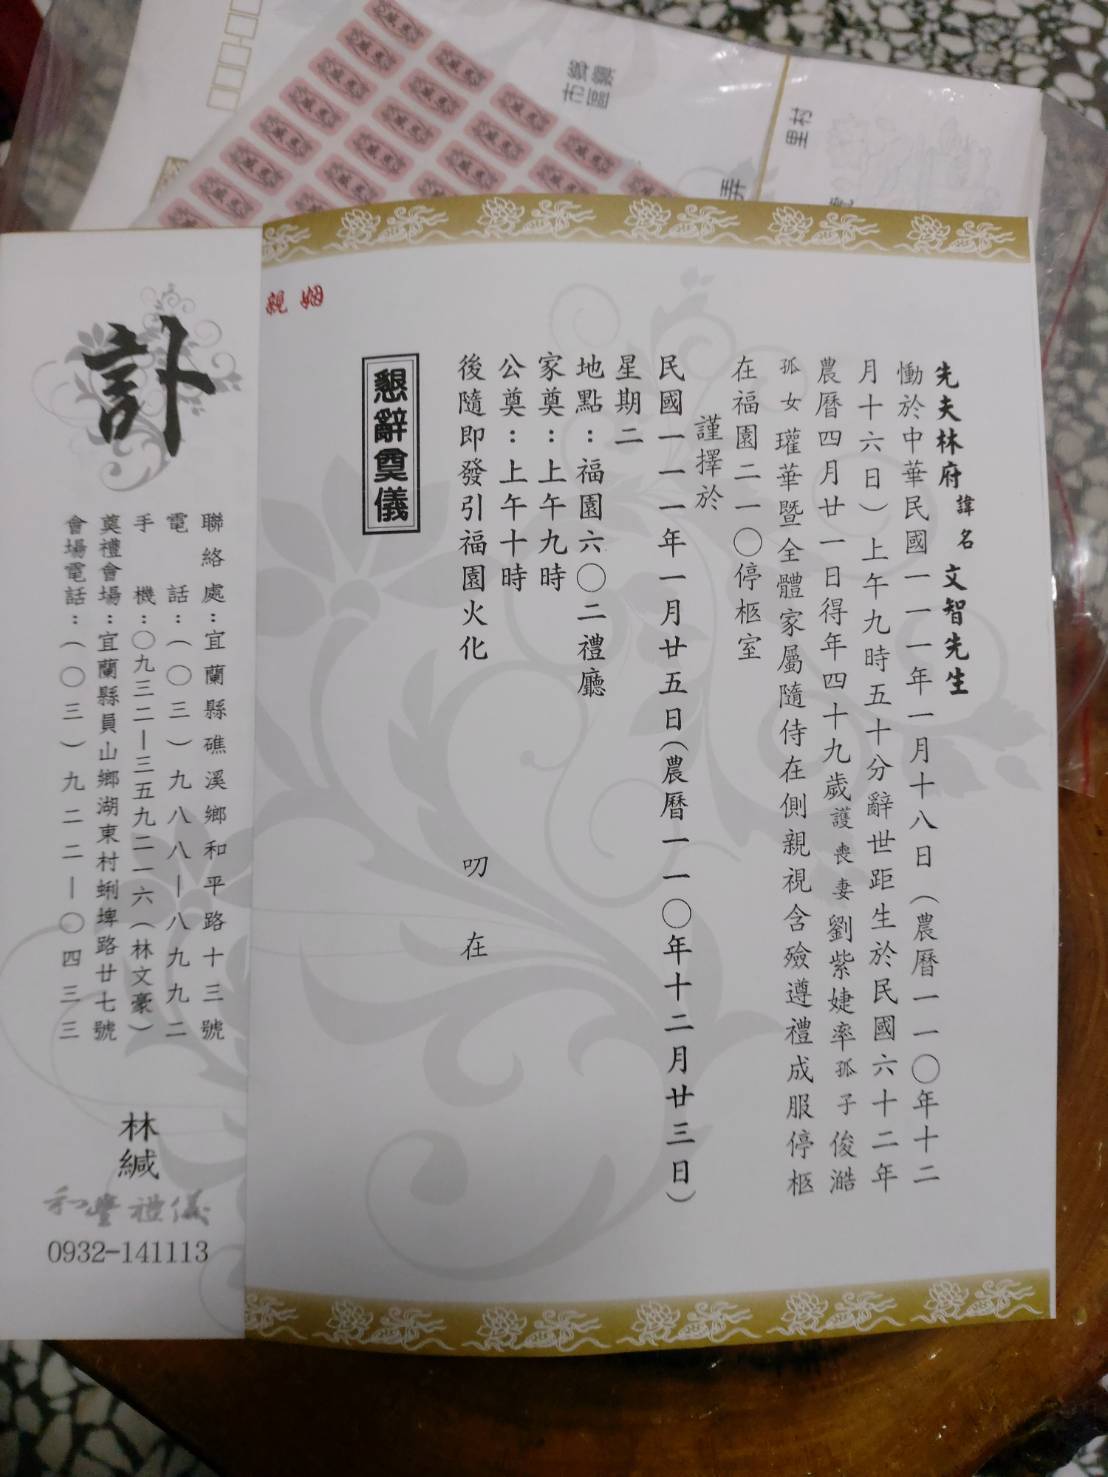 先夫林府諱名文智先生
慟於中華民國一一一年一月十八日（農曆一一〇年十二
月十六日）上午九時五十分辭世距生於民國六十二年
農曆四月廿一日得年四十九歲護喪妻劉紫婕率孤子俊澔
孤女瓘華暨全體家屬隨侍在側親視含殮遵禮成服停柩
在福園二一〇停柩室
謹擇於
民國一一一年一月廿五日（農曆一一〇年十二月廿三日）
星期二
地點：福園六〇二禮廳
家奠：上午九時
公奠：上午十時
後隨即發引福園火化
叨在
懇辭奠儀
姻親
訃
聯絡處：宜蘭縣礁溪鄉和平路十三號
電話：（〇三）九八八－八九九二
手機：〇九三二－三五九二一六（林文豪）
奠禮會場：宜蘭縣員山鄉湖東村蜊埤路廿七號
會場電話：（〇三）九二二－〇四三三
林緘
和豐禮儀
0932-141113
縣市
鄉區
村里